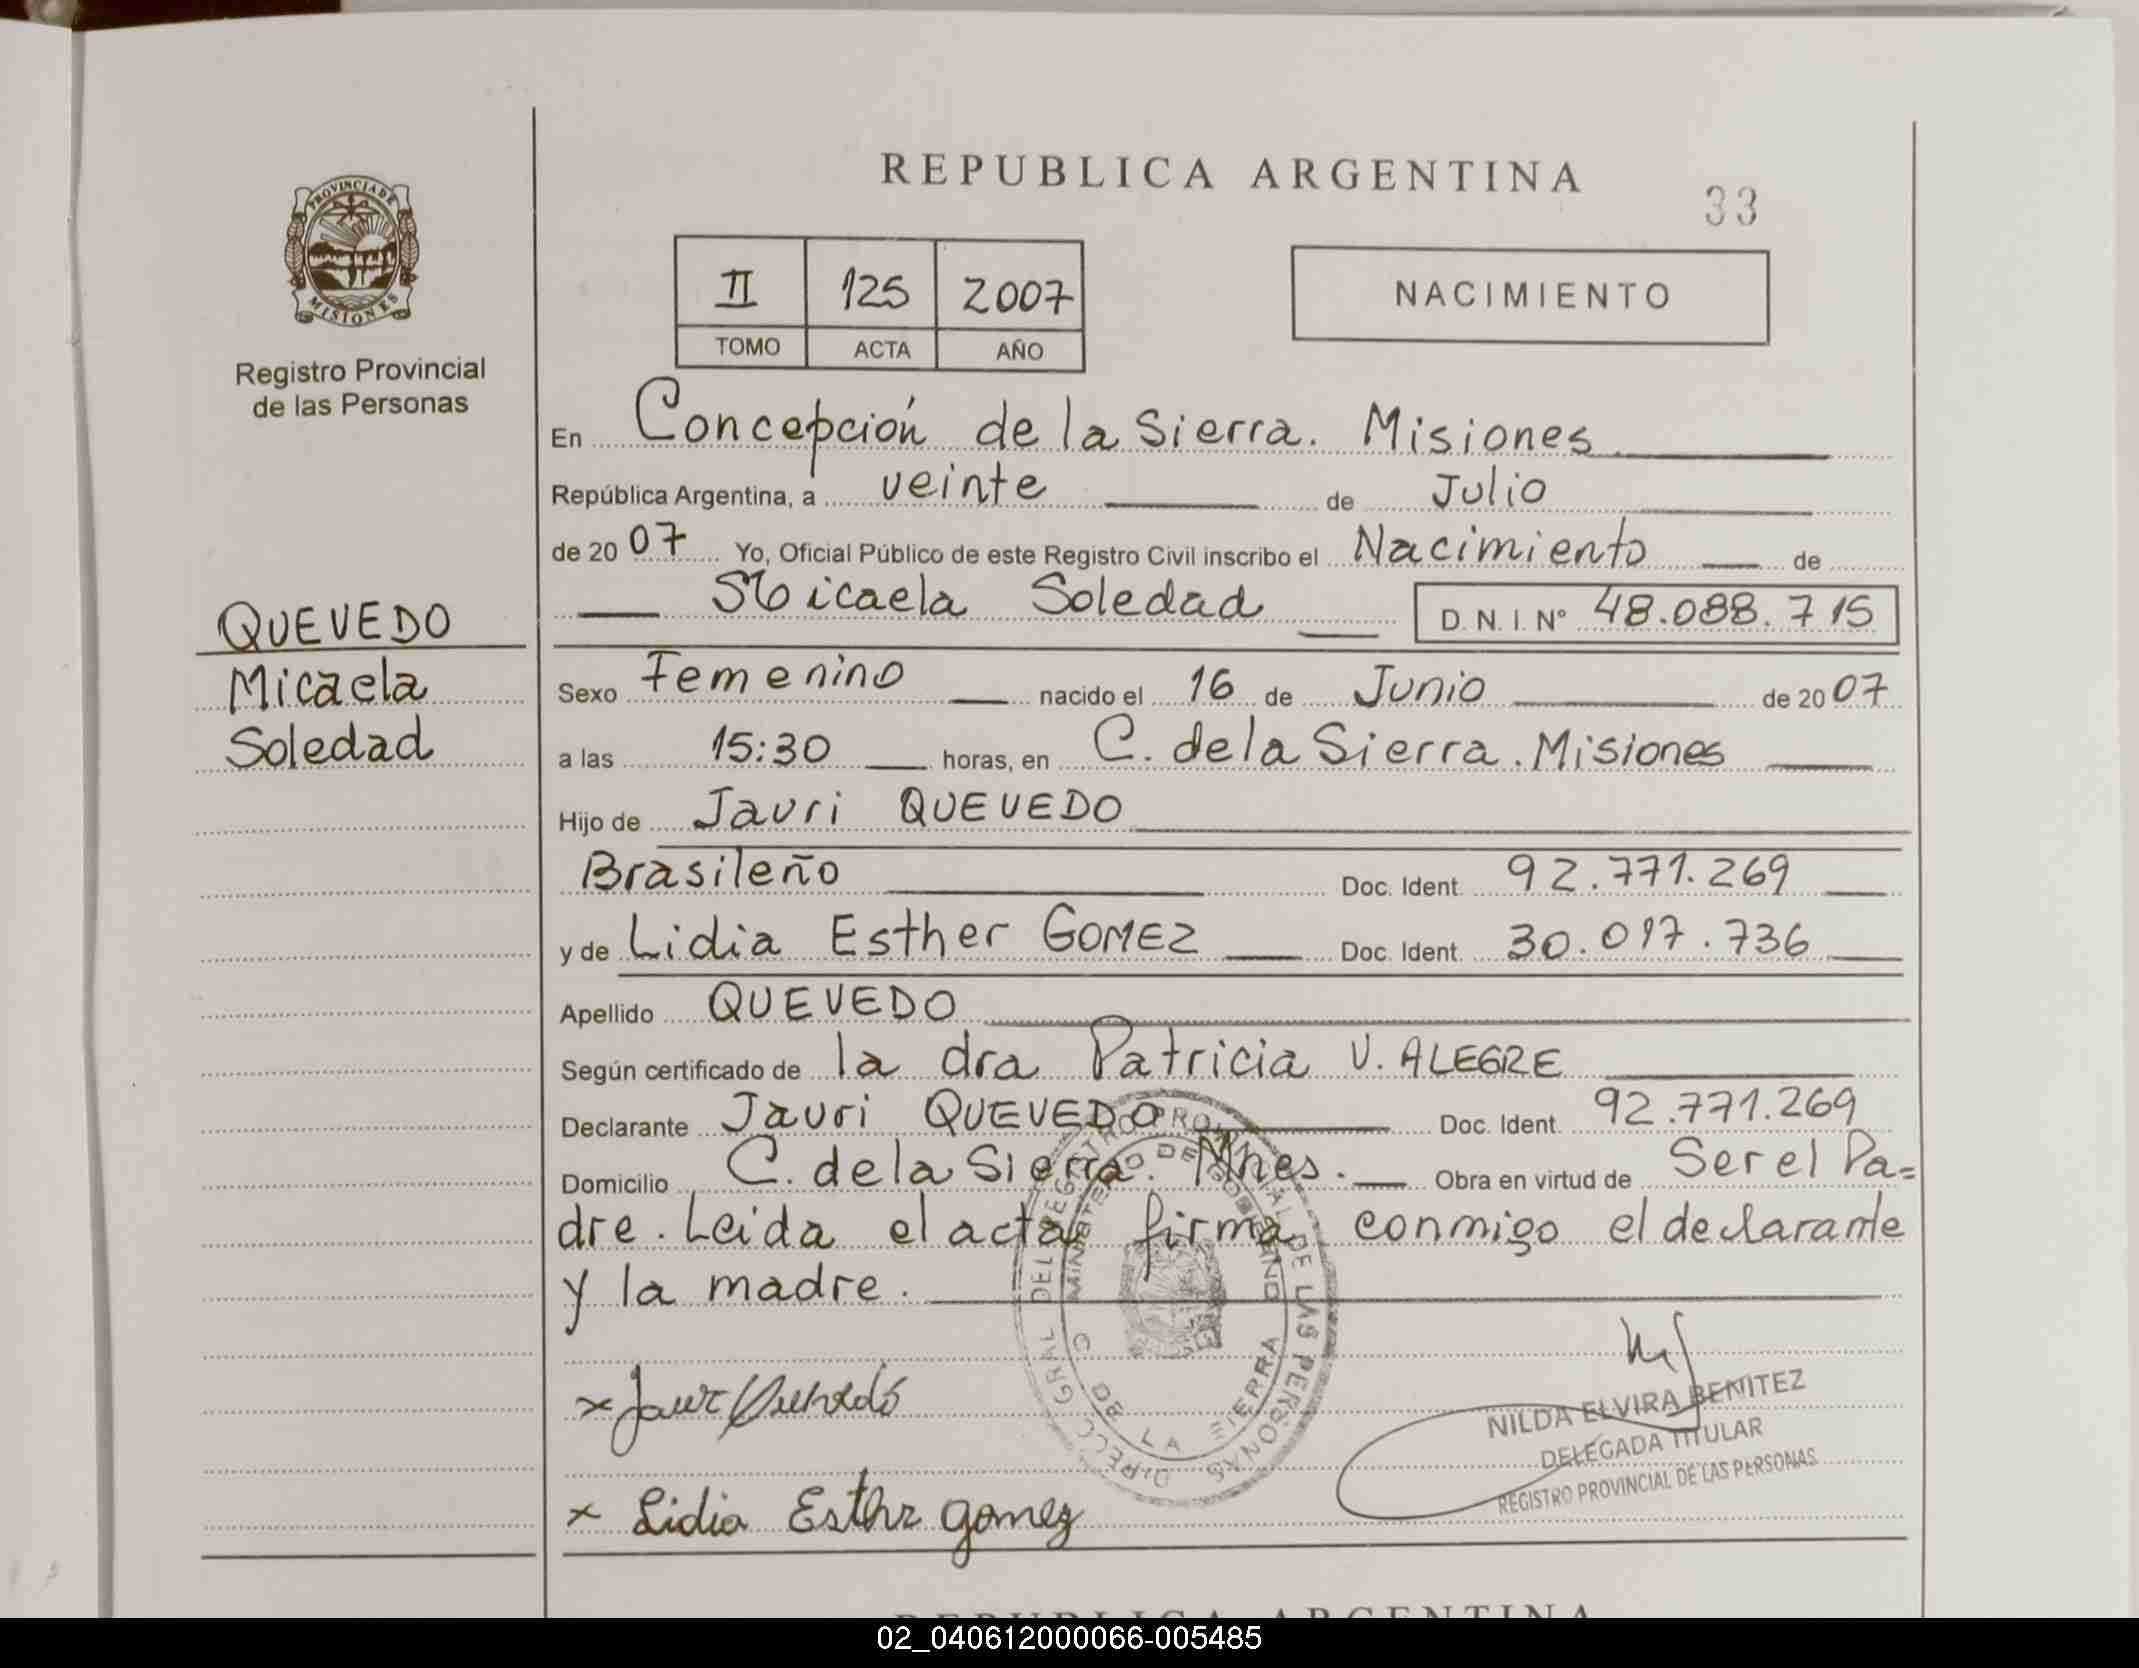 REPUBLICA ARGENTINA
33
PROVINCIA DE
MISIONES
Registro Provincial
de las Personas
II 125 2007
TOMO ACTA AÑO
NACIMIENTO
En Concepción de la Sierra. Misiones
República Argentina, a veinte de Julio
de 20 07 Yo, Oficial Público de este Registro Civil inscribo el Nacimiento de
Micaela Soledad D. N. I. Nº 48.088.715
QUEVEDO
Micaela
Soledad
Sexo Femenino nacido el 16 de Junio de 20 07
a las 15:30 horas, en C. de la Sierra. Misiones
Hijo de Jauri QUEVEDO
Brasileño Doc. Ident. 92.771.269
y de Lidia Esther GOMEZ Doc. Ident. 30.017.736
Apellido QUEVEDO
Según certificado de la dra Patricia V. ALEGRE
Declarante Jauri QUEVEDO Doc. Ident. 92.771.269
Domicilio C. de la Sierra. Mnes. Obra en virtud de Ser el Pa=
dre. Leida el acta firma conmigo el declarante
y la madre.
DIRECC GRAL DEL REGISTRO PROVINCIAL DE LAS PERSONAS
MINISTERIO DE GOBIERNO
C DE LA SIERRA
x Jauri Quevedo
x Lidia Esther gomez
NILDA ELVIRA BENITEZ
DELEGADA TITULAR
REGISTRO PROVINCIAL DE LAS PERSONAS
REPUBLICA ARGENTINA
02_040612000066-005485